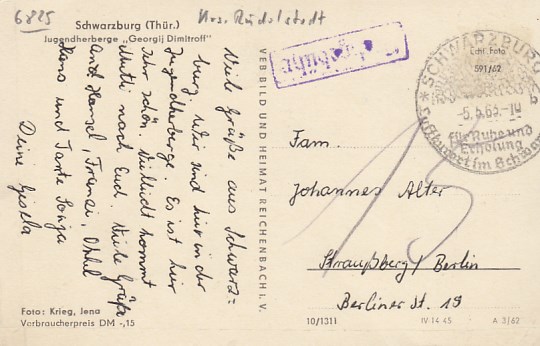 6825
Krs. Rudolstadt
Schwarzburg (Thür.)
Jugendherberge „Georgij Dimitroff"
Viele Grüße aus Schwarz=
burg. Wir sind hier in der
Jugendherberge. Es ist hier
sehr schön. Vielleicht kommt
Mutti nach Euch. Viele Grüße
and Hansel, Franzi, Onkel
Hans und Tante Sonja
Deine Gisela
Foto: Krieg, Jena
Verbraucherpreis DM -,15
VEB BILD UND HEIMAT REICHENBACH i. V.
Echt Foto
591/62
* SCHWARZBURG
-5.5.63.-10
für Ruhe und
Erholung
Luftkurort im Schwarz
Fam.
Johannes Alter
Straußberg/ Berlin
Berliner St. 19
10/1311
IV-14-45
A 3/62